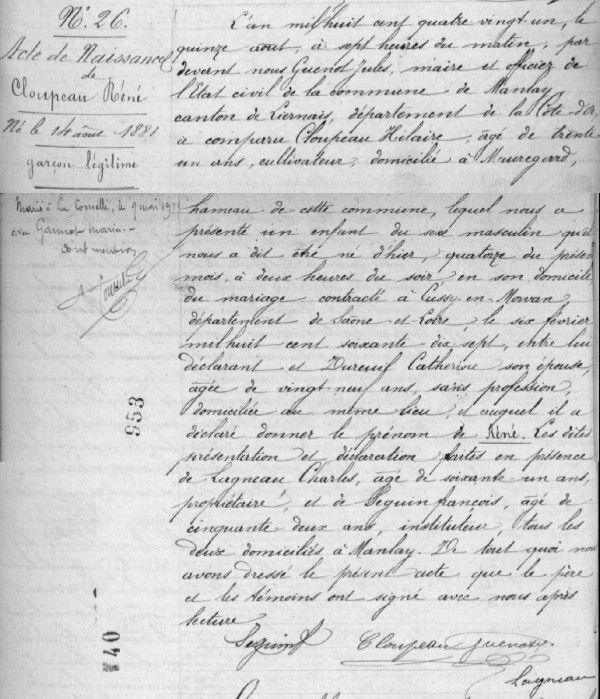 N°. 26.
Acte de Naissance
de
Cloupeau Réné
Né le 14 août 1881
garçon légitime
L'an mil huit cent quatre vingt un, le
quinze août, à sept heures du matin, par
devant nous Guenot Jules, maire et officier de
l'Etat civil de la commune de Manlay,
canton de Liernais, département de la Côte-d'Or,
a comparu Cloupeau Hilaire, âgé de trente
un ans, cultivateur, domicilié à Mauregard,
hameau de cette commune, lequel nous a
présenté un enfant du sexe masculin qu'il
nous a dit être né d'hier, quatorze du présent
mois, à deux heures du soir en son domicile
du mariage contracté à Cussy-en-Morvan,
département de Saône-et-Loire le six février
mil huit cent soixante-dix-sept, entre lui
déclarant et Dureuil Catherine son épouse,
âgée de vingt-neuf ans, sans profession,
domiciliée au même lieu, et auquel il a
déclaré donner le prénom de Réné. Les dites
présentation et déclaration faites en présence
de Lagneau Charles, âgé de soixante-un ans,
propriétaire, et de Seguin françois, âgé de
cinquante deux ans, instituteur, tous les
deux domiciliés à Manlay. De tout quoi nous
avons dressé le présent acte que le père
et les témoins ont signé avec nous après
lecture
Seguin f Cloupeau Guenot
Lagneau
Marié à La Comelle, le 9 mai
avec Garnier maria
dont mention
953
740